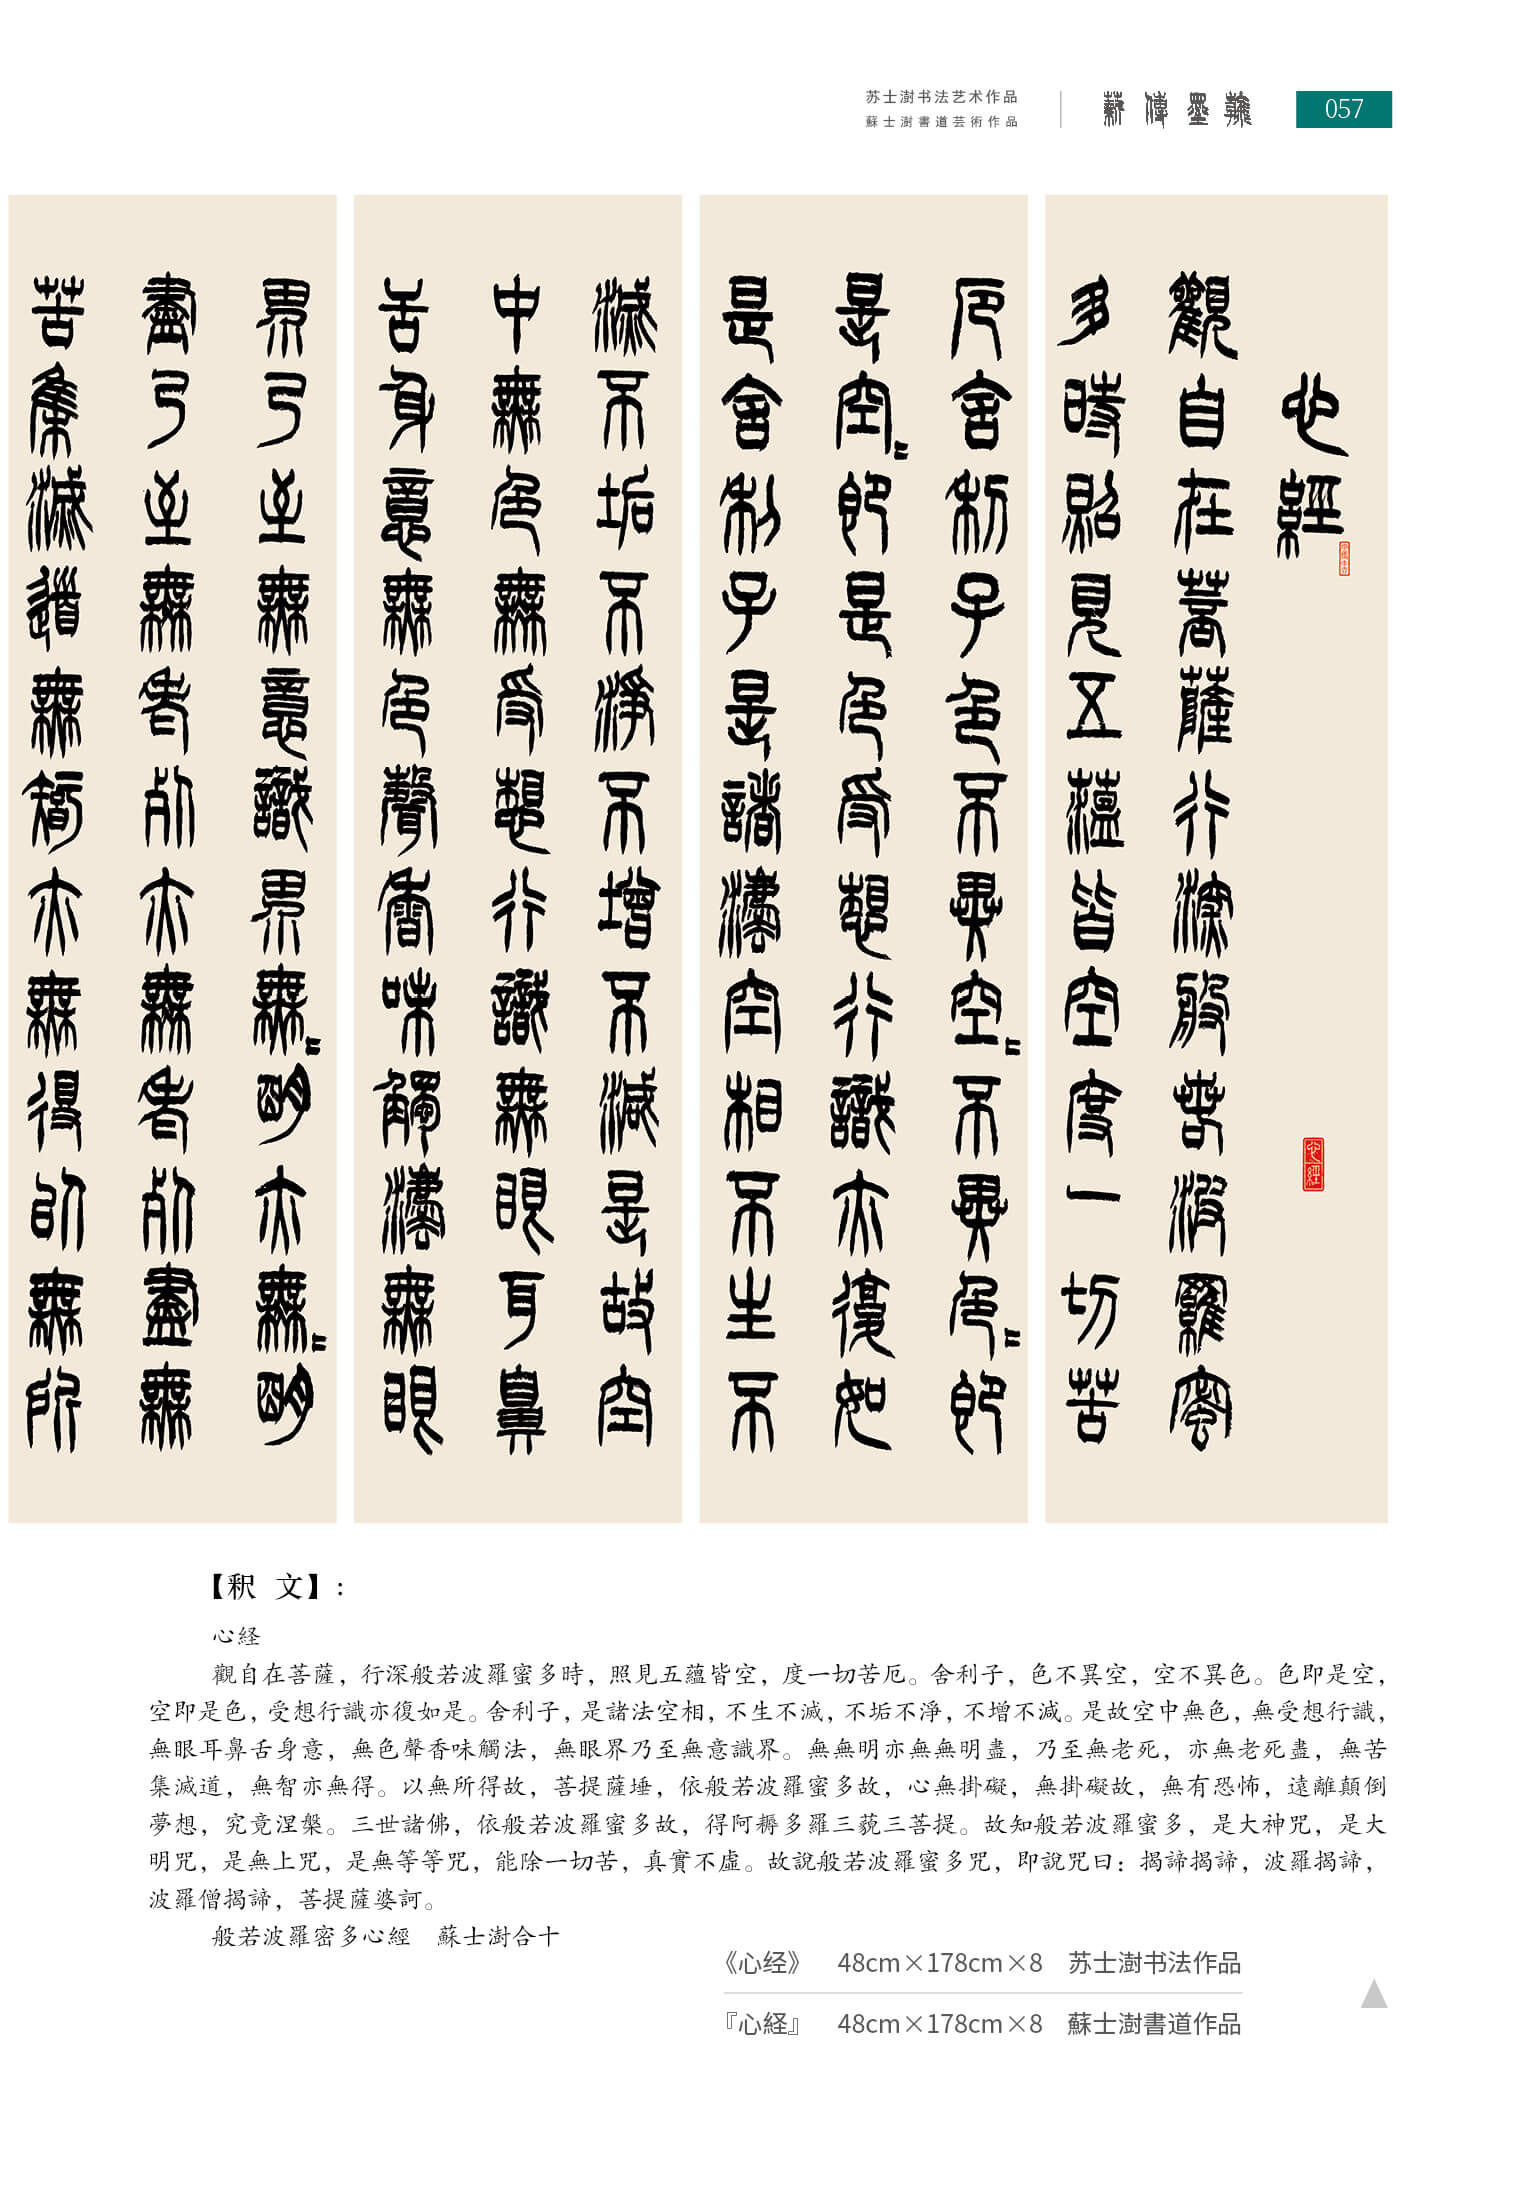 苏士澍书法艺术作品
蘇士澍書道芸術作品
薪傳墨翰
057
心經
觀自在菩薩行深般若波羅蜜
多時照見五蘊皆空度一切苦
厄舍利子色不異空〻不異色〻即
是空〻即是色受想行識亦復如
是舍利子是諸法空相不生不
滅不垢不淨不增不減是故空
中無色無受想行識無眼耳鼻
舌身意無色聲香味觸法無眼
界乃至無意識界無〻明亦無〻明
盡乃至無老死亦無老死盡無
苦集滅道無智亦無得以無所
心經
【釈 文】:
心経
觀自在菩薩，行深般若波羅蜜多時，照見五蘊皆空，度一切苦厄。舍利子，色不異空，空不異色。色即是空，
空即是色，受想行識亦復如是。舍利子，是諸法空相，不生不滅，不垢不淨，不增不減。是故空中無色，無受想行識，
無眼耳鼻舌身意，無色聲香味觸法，無眼界乃至無意識界。無無明亦無無明盡，乃至無老死，亦無老死盡，無苦
集滅道，無智亦無得。以無所得故，菩提薩埵，依般若波羅蜜多故，心無掛礙，無掛礙故，無有恐怖，遠離顛倒
夢想，究竟涅槃。三世諸佛，依般若波羅蜜多故，得阿耨多羅三藐三菩提。故知般若波羅蜜多，是大神咒，是大
明咒，是無上咒，是無等等咒，能除一切苦，真實不虛。故說般若波羅蜜多咒，即說咒曰：揭諦揭諦，波羅揭諦，
波羅僧揭諦，菩提薩婆訶。
般若波羅密多心經　蘇士澍合十
《心经》　48cm×178cm×8　苏士澍书法作品
『心経』　48cm×178cm×8　蘇士澍書道作品